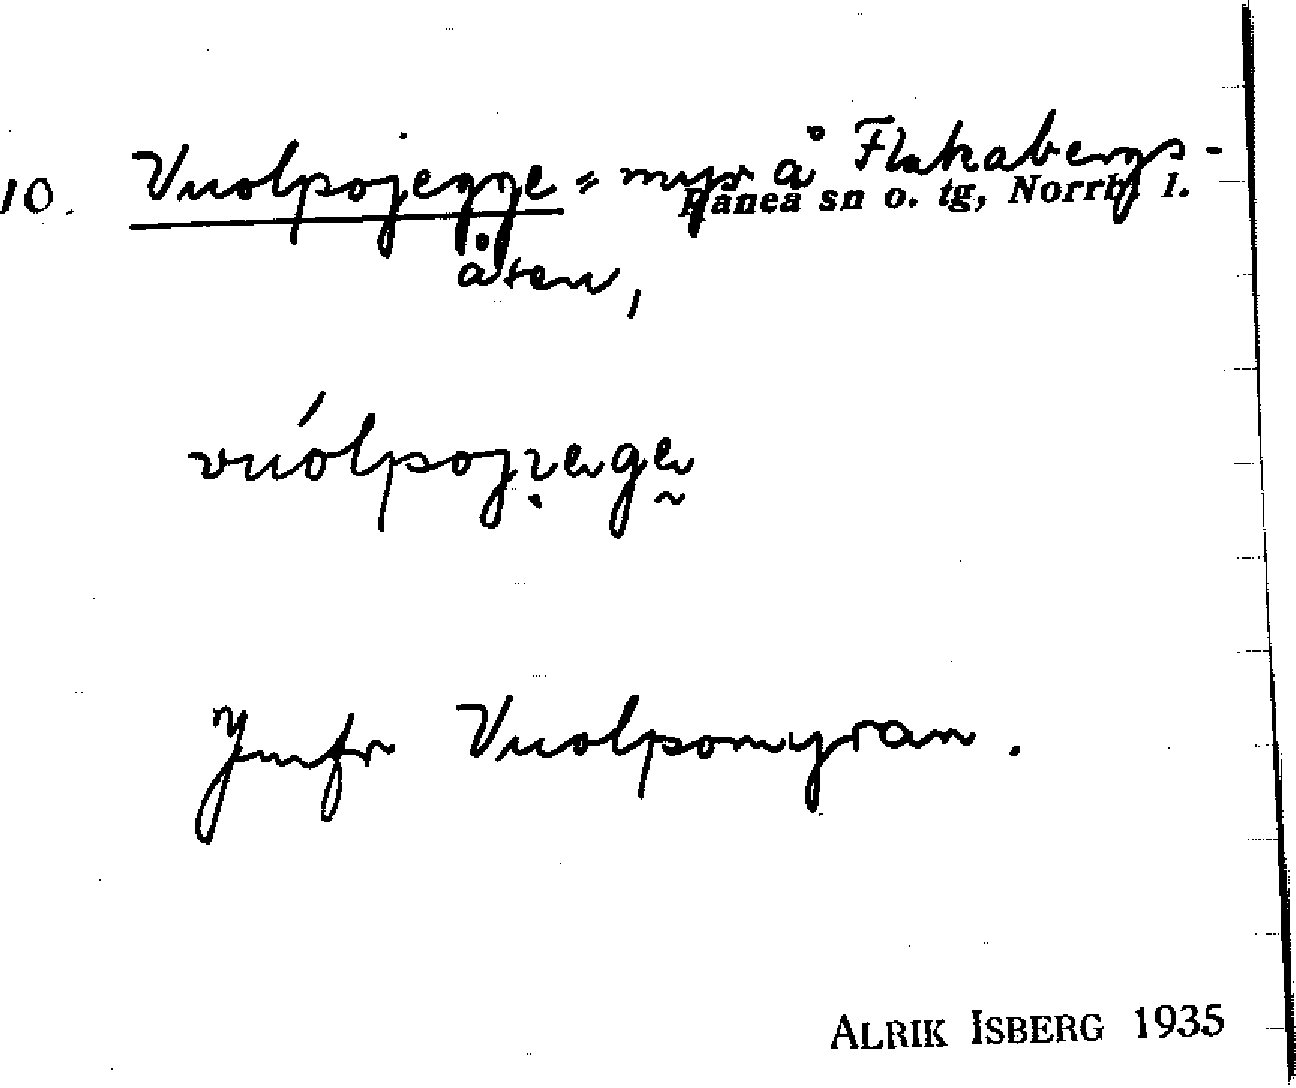 10. Vuolpojegge = myr å Flakabergs-
Råneå sn o. tg, Norrb. l.
åsen,
vuólpojege
Jmfr Vuolpomyran.
ALRIK ISBERG 1935